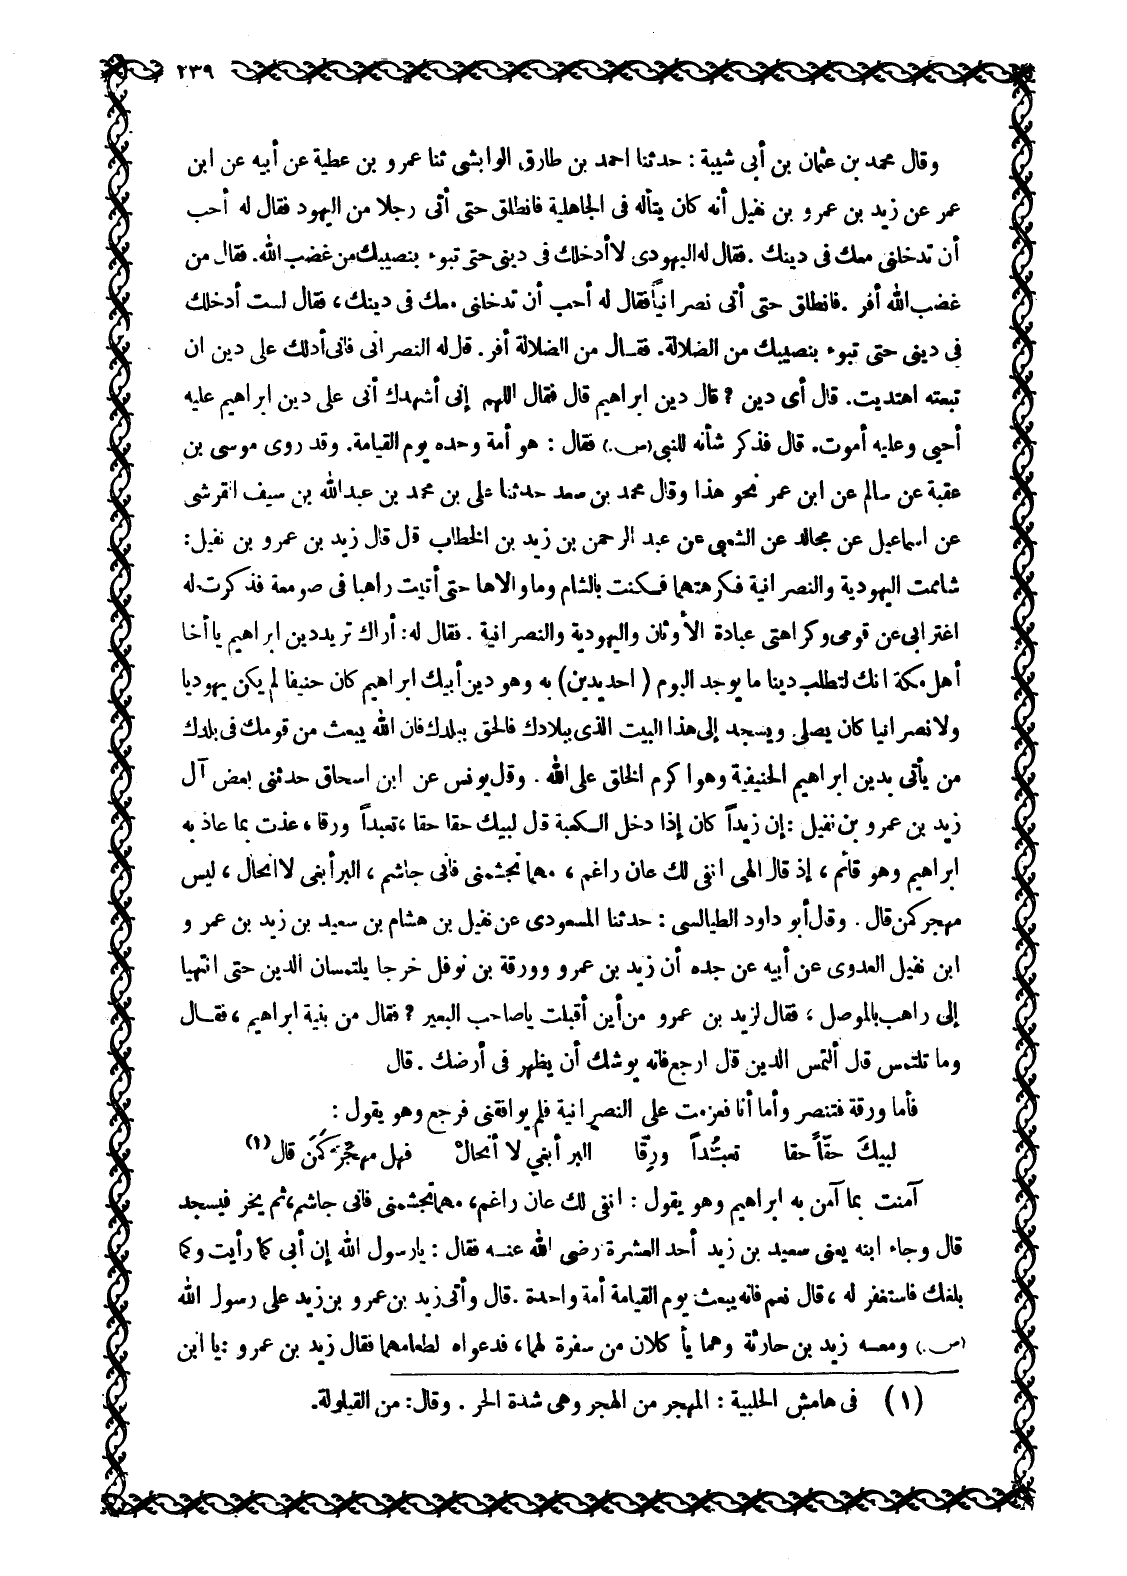 ٢٣٩
وقال محمد بن عثمان بن أبى شيبة : حدثنا احمد بن طارق الوابشى ثنا عمرو بن عطية عن أبيه عن ابن
عمر عن زيد بن عمرو بن نفيل أنه كان يتأله فى الجاهلية فانطلق حتى أتى رجلا من اليهود فقال له أحب
أن تدخلنى معك فى دينك . فقال له اليهودى لا أدخلك فى دينى حتى تبوء بنصيبك من غضب الله. فقال من
غضب الله أفر . فانطلق حتى أتى نصرانياً فقال له أحب أن تدخلنى معك فى دينك ، فقال لست أدخلك
فى دينى حتى تبوء بنصيبك من الضلالة. فقال من الضلالة أفر. قال له النصرانى فانى أدلك على دين ان
تبعته اهتديت. قال أى دين ? قال دين ابراهيم قال فقال اللهم إنى أشهدك أنى على دين ابراهيم عليه
أحيى وعليه أموت. قال فذكر شأنه للنبى (ص.) فقال : هو أمة وحده يوم القيامة. وقد روى موسى بن
عقبة عن سالم عن ابن عمر نحو هذا وقال محمد بن سعد حدثنا على بن محمد بن عبدالله بن سيف القرشى
عن اسماعيل عن مجالد عن الشعبى عن عبد الرحمن بن زيد بن الخطاب قال قال زيد بن عمرو بن نفيل :
شاممت اليهودية والنصرانية فكرهتهما فكنت بالشام وما والاها حتى أتيت راهبا فى صومعة فذكرت له
اغترابى عن قومى وكراهتى عبادة الأوثان واليهودية والنصرانية . فقال له : أراك تريد دين ابراهيم يا أخا
أهل مكة انك لتطلب دينا ما يوجد اليوم ( احد يدين ) به وهو دين أبيك ابراهيم كان حنيفا لم يكن يهوديا
ولا نصرانيا كان يصلى ويسجد إلى هذا البيت الذى ببلادك فالحق ببلدك فان الله يبعث من قومك فى بلدك
من يأتى بدين ابراهيم الحنيفية وهو اكرم الخلق على الله . وقال يونس عن ابن اسحاق حدثنى بعض آل
زيد بن عمرو بن نفيل : إن زيداً كان إذا دخل الكعبة قال لبيك حقا حقا ، تعبداً ورقا ، عذت بما عاذ به
ابراهيم وهو قائم ، إذ قال الهى انفى لك عان راغم ، مهما تجشمنى فانى جاشم ، البر أبغى لا انحال ، ليس
مهجر كمن قال . وقال أبو داود الطيالسى : حدثنا المسعودى عن نفيل بن هشام بن سعيد بن زيد بن عمرو
ابن نفيل العدوى عن أبيه عن جده أن زيد بن عمرو وورقة بن نوفل خرجا يلتمسان الدين حتى انتهيا
إلى راهب بالموصل ، فقال لزيد بن عمرو من أين أقبلت ياصاحب البعير ? فقال من بنية ابراهيم ، فقال
وما تلتمس قال ألتمس الدين قال ارجع فانه يوشك أن يظهر فى أرضك . قال
فأما ورقة فتنصر وأما أنا فعزمت على النصرانية فلم يوافقنى فرجع وهو يقول :
لبيكَ حقّاً حقا تعبُّداً ورِقّا البر أبغي لا أنحالْ فهل مهجِّر كمَنْ قال (١)
آمنت بما آمن به ابراهيم وهو يقول : انفى لك عان راغم ، مهما تجشمنى فانى جاشم ، ثم يخر فيسجد
قال وجاء ابنه يعنى سعيد بن زيد أحد العشرة رضى الله عنه فقال : يارسول الله إن أبى كما رأيت وكما
بلغك فاستغفر له ، قال نعم فانه يبعث يوم القيامة أمة واحدة . قال وأتى زيد بن عمرو بن زيد على رسول الله
(ص.) ومعه زيد بن حارثة وهما يأكلان من سفرة لهما ، فدعواه لطعامهما فقال زيد بن عمرو : يا ابن
(١) فى هامش الحلبية : المهجر من الهجر وهى شدة الحر . وقال : من القيلولة.